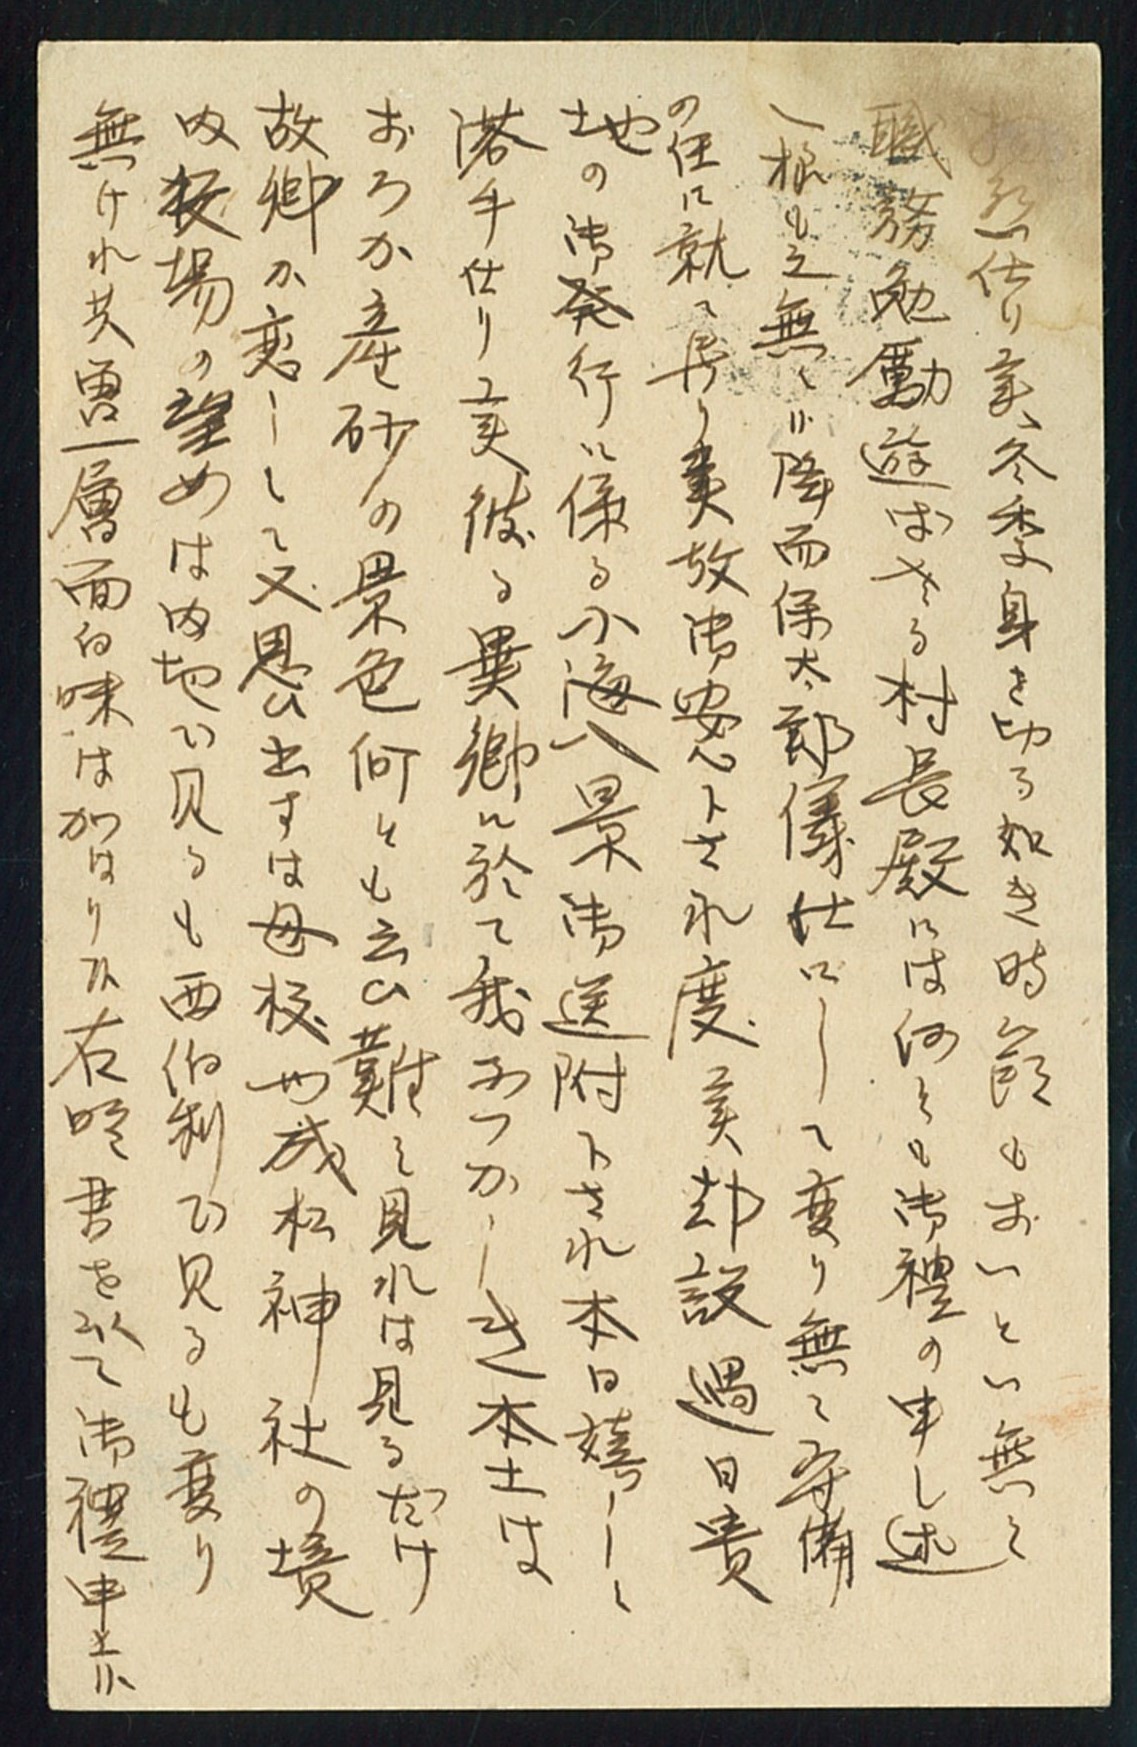 仕り候、冬季身を切る如き時節もおいとい無く
職務勉励遊ばさる村長殿には何とも御禮の申し述
べ様も之無く候降而保太郎儀仕にして変り無く守備
の任に就て居り候故御安心下され度候却説過日貴
地の御発行に係る小海八景御送附下され本日嬉しく
落手仕り候彼る異郷に於て我なつかしき本土は
おろか産砂の景色何とも云ひ難く見れは見るだけ
故郷か恋しして又思ひ出すは母校や成松神社の境
内桜場の望めは内地ひ見るも西伯利ひ見るも変り
無けれ共曽一層面白味は加はり候右略書を以て御禮申上候